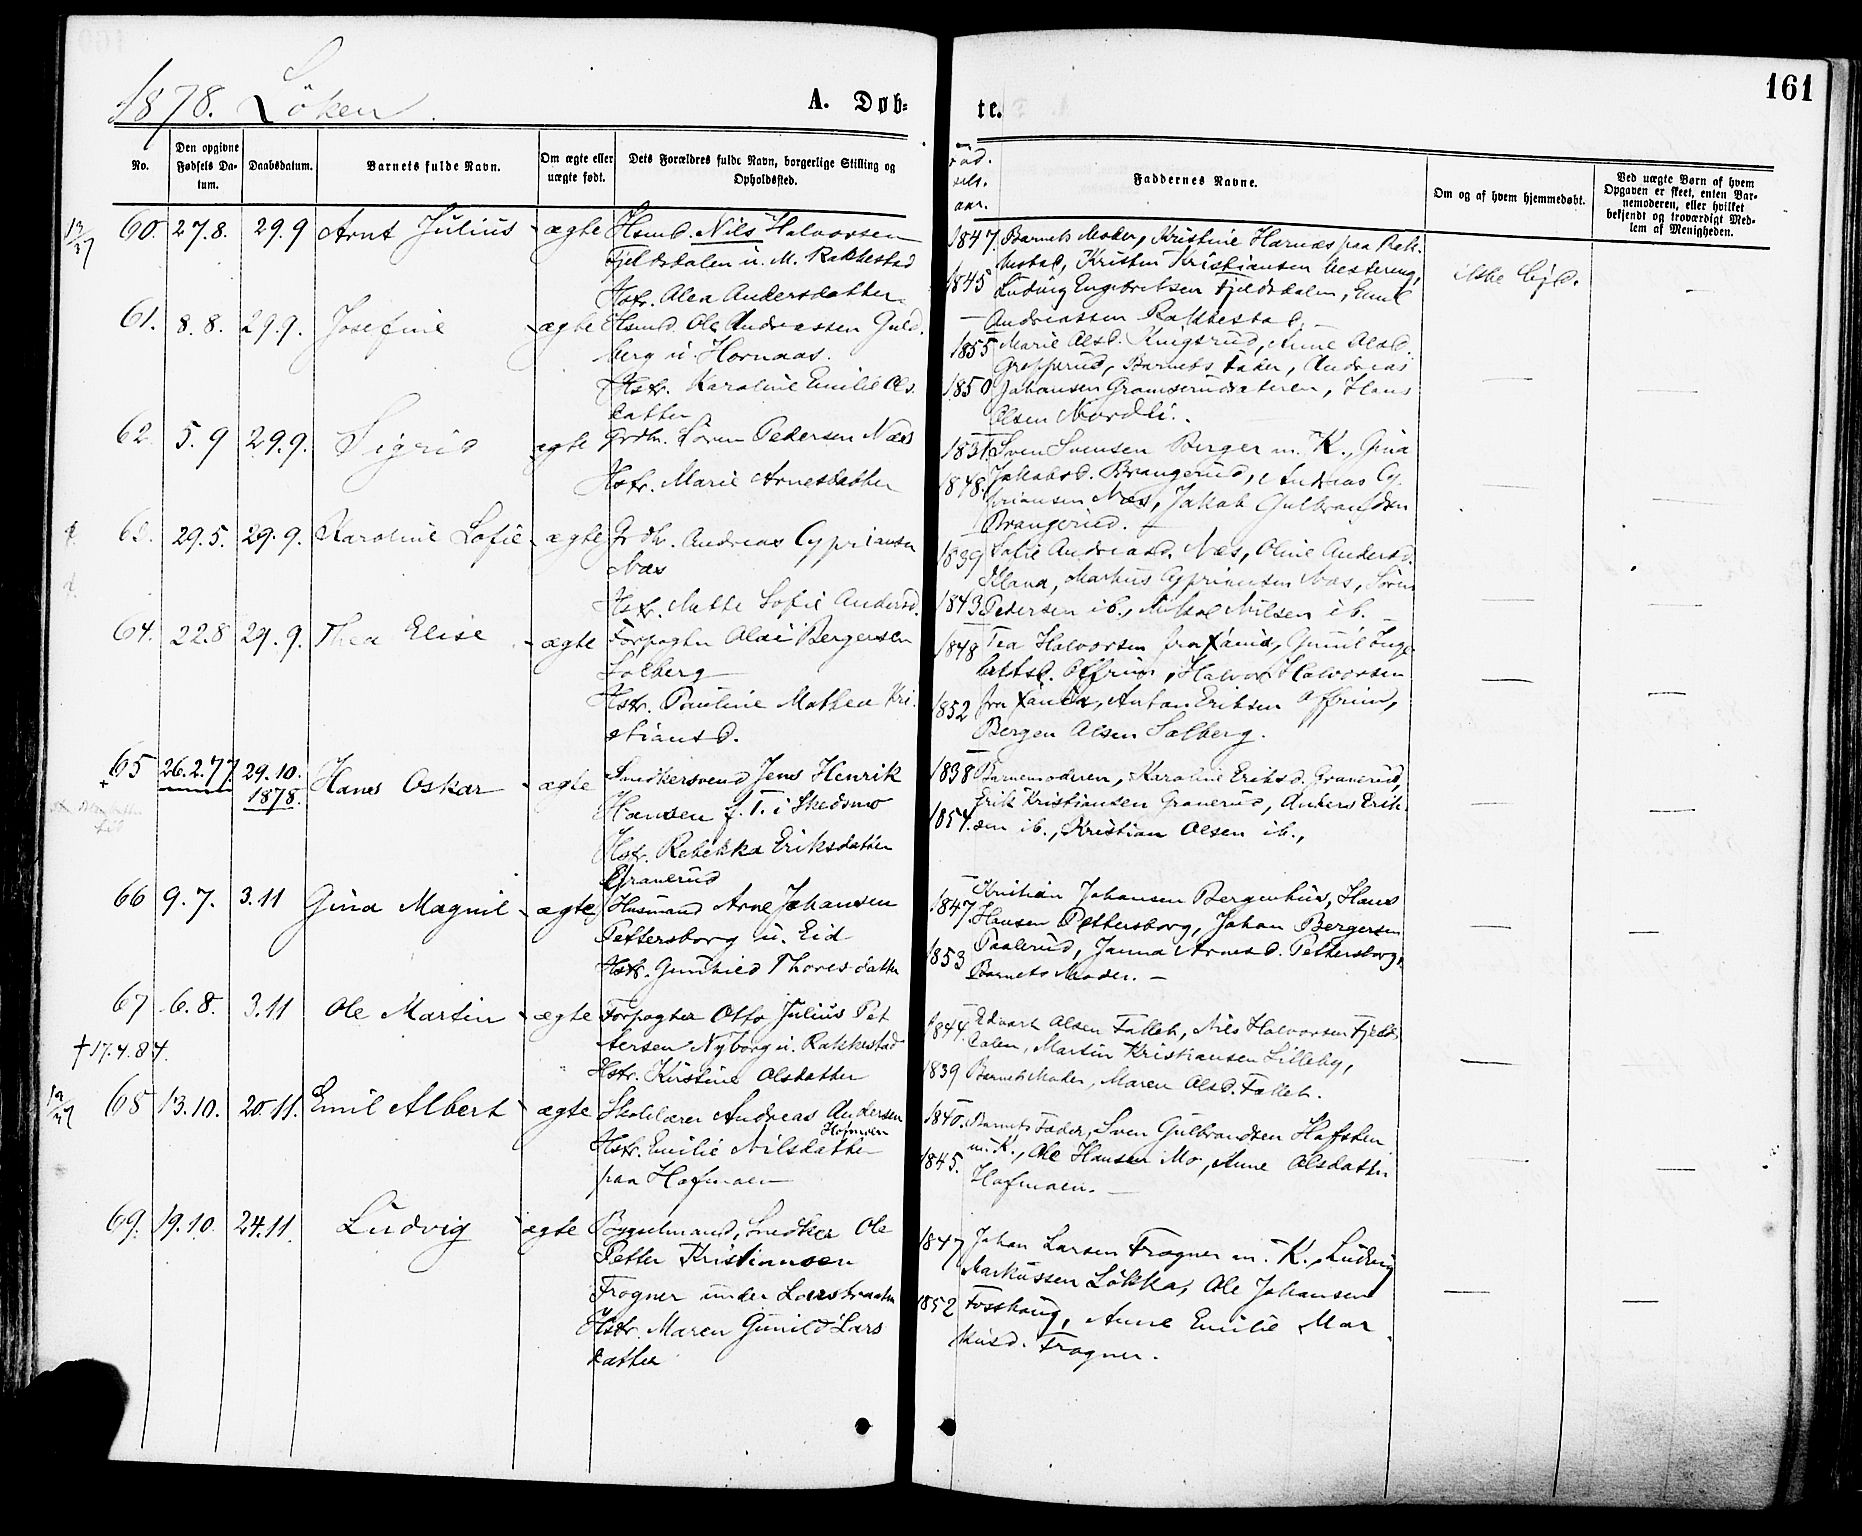 161
1878. Löken.
A. Døb-
te.
No.
Den opgivne Fødsels Datum.
Daabsdatum.
Barnets fulde Navn.
Om ægte eller uægte født.
Dets Forældres fulde Navn, borgerlige Stilling og Opholdssted.
Fød-
sels-
aar.
Faddernes Navne.
Om og af hvem hjemmedøbt.
Ved uægte Børn af hvem Opgaven er skeet, enten Barnemoderen, eller hvilket bekjendt og troværdigt Medlem af Menigheden.
60. 27.8. 29.9 Arnt Julius - ægte Hsmd. Nils Halvorsen
Fjeldsdalen u. M. Rakkestad
Hstr. Olea Andersdatter
1847 Barnets Moder, Kristine Harnæs paa Rak-
kestad, Kristen Kristiansen Vestereng,
1845 Ludvig Engebretsen Fjeldsdalen, Emil
Andreassen Rakkestad. -
ikke hjd.
61. 8.8. 29.9. Josefine - ægte Hsmd. Ole Andreassen Guld-
berg u Hornaas.
Hstr. Karoline Emilie Ols-
datter
1855 Marie Olsd. Kingsrud, Anne Olsd.
Grepperud, Barnets Fader, Andreas
1850 Johansen Gramserudsæteren, Hans
Olsen Nordli.
62. 5.9 29.9. Sigrid ægte Grdbr. Sören Pedersen Næs
Hstr. Marie Arnesdatter
1831 Sven Svensen Berger m. K., Gina
1848. Jakobsd. Brangerud, Andreas Cy-
priansen Næs, Jakob Gulbrandsen
Brangerud.
63. 29.5. 29.9. Karoline Sofie - ægte Grdbr. Andreas Cypriansen
Næs
Hstr. Mathe Sofie Andersd.
1839 Sofie Andreasd. Næs, Oline Andersd.
Kland, Markus Cypriansen Næs, Sören
1843 Pedersen ib., Mikal Nilsen ib.
64. 22.8 29.9. Thea Elise - ægte Forpagter Olai Bergersen
Solberg
Hstr. Pauline Mathea Kri-
stiansd.
1848 Tea Halvorsen fra Xania, Gunil Inge-
bretsd. Offrim, Halvor Halvorsen
1852 fra Xania, Anton Eriksen Offrim,
Bergen Olsen Solberg.
65 26.2.77 29.10. 1878. Hans Oskar - ægte Smedkersvend Jens Henrik
Hansen f. T. i Skedsmo
Hstr. Rebekka Eriksdatter
Granerud
1838 Barnemoderen, Karoline Eriksd. Granerud,
Erik Kristiansen Granerud, Anders Erik-
1854. sen ib., Kristian Olsen ib.,
66 9.7. 3.11 Gina Magnil - ægte Husmand Arne Johansen
Pettersborg u. Eid
Hstr. Gunhild Thoresdatter
1847. Kristian Johansen Bergerhus, Hans
Hansen Pettersborg, Johan Bergersen
1853 Paalerud, Janna Arnesd. Pettersborg,
Barnets Moder. -
67 6.8. 3.11 Ole Martin - ægte Forpagter Otto Julius Pet-
tersen Nyborg u. Rakkestad
Hstr. Kirstine Olsdatter
†17.4.84.
1844. Edvart Olsen Falleth, Nils Halvorsen Fjelds-
dalen, Martin Kristiansen Lilleby,
1839 Barnets Moder, Maren Olsd. Falleth.
68 13.10. 20.11. Emil Albert - ægte Skolelærer Andreas Andersen
Hofmoen
Hstr. Emilie Nilsdatter
paa Hofmoen
1840. Barnets Fader, Sven Gulbrandsen Hafsten
1845. m. K., Ole Hansen Mo, Anne Olsdatter
Hofmoen. -
69. 19.10. 24.11. Ludvig ægte Bygselmand, Snedker Ole
Petter Kristiansen
Frogner under Lorsbraaten
Hstr. Maren Gunild Lars
datter
1847 Johan Larsen Frogner m. K., Ludvig
Markussen Lökka, Ole Johansen
1852 Fosshaug, Anne Emilie Mar-
kusd. Frogner.